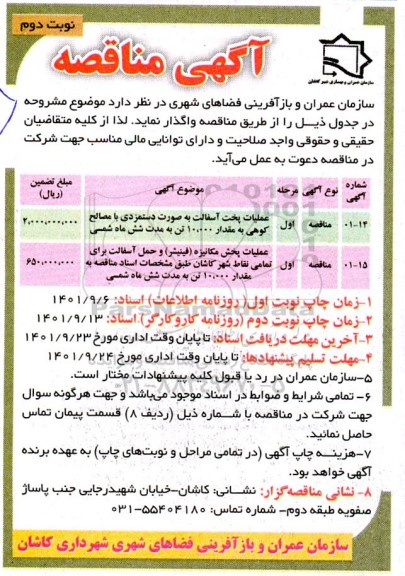 نوبت دوم
آگهی مناقصه
سازمان عمران و بهسازی شهر کاشان
سازمان عمران و بازآفرینی فضاهای شهری در نظر دارد موضوع مشروحه
در جدول ذیـــل را از طریق مناقصه واگذار نماید. لذا از کلیه متقاضیان
حقیقی و حقوقی واجد صلاحیت و دارای توانایی مالی مناسب جهت شرکت
در مناقصه دعوت به عمل می‌آید.
شماره آگهی نوع آگهی مرحله موضوع آگهی مبلغ تضمین (ریال)
۰۱-۱۴ مناقصه اول عملیات پخت آسفالت به صورت دستمزدی با مصالح کوهی به مقدار ۱۰,۰۰۰ تن به مدت شش ماه شمسی ۲,۰۰۰,۰۰۰,۰۰۰
۰۱-۱۵ مناقصه اول عملیات پخش مکانیزه (فینیشر) و حمل آسفالت برای تمامی نقاط شهر کاشان طبق مشخصات اسناد مناقصه به مقدار ۱۰,۰۰۰ تن به مدت شش ماه شمسی ۶۵۰,۰۰۰,۰۰۰
۱-زمان چاپ نوبت اول( روزنامه اطلاعات) اسناد: ۱۴۰۱/۹/۶
۲-زمان چاپ نوبت دوم (روزنامه کاروکارگر) اسناد: ۱۴۰۱/۹/۱۳
۳-آخرین مهلت دریافت اسناد: تا پایان وقت اداری مورخ ۱۴۰۱/۹/۲۳
۴-مهلت تسلیم پیشنهادها: تا پایان وقت اداری مورخ ۱۴۰۱/۹/۲۴
۵-سازمان عمران در رد یا قبول کلیه پیشنهادات مختار است.
۶- تمامی شرایط و ضوابط در اسناد موجود می‌باشد و جهت هرگونه سوال
جهت شرکت در مناقصه با شــماره ذیل (ردیف ۸) قسمت پیمان تماس
حاصل نمائید.
۷-هزینـــه چاپ آگهی (در تمامی مراحل و نوبت‌های چاپ) به عهده برنده
آگهی خواهد بود.
۸- نشانی مناقصه‌گزار: نشــانی: کاشان-خیابان شهیدرجایی جنب پاساژ
صفویه طبقه دوم- شماره تماس: ۵۵۴۰۴۱۸۰-۰۳۱
سازمان عمران و بازآفرینی فضاهای شهری شهرداری کاشان